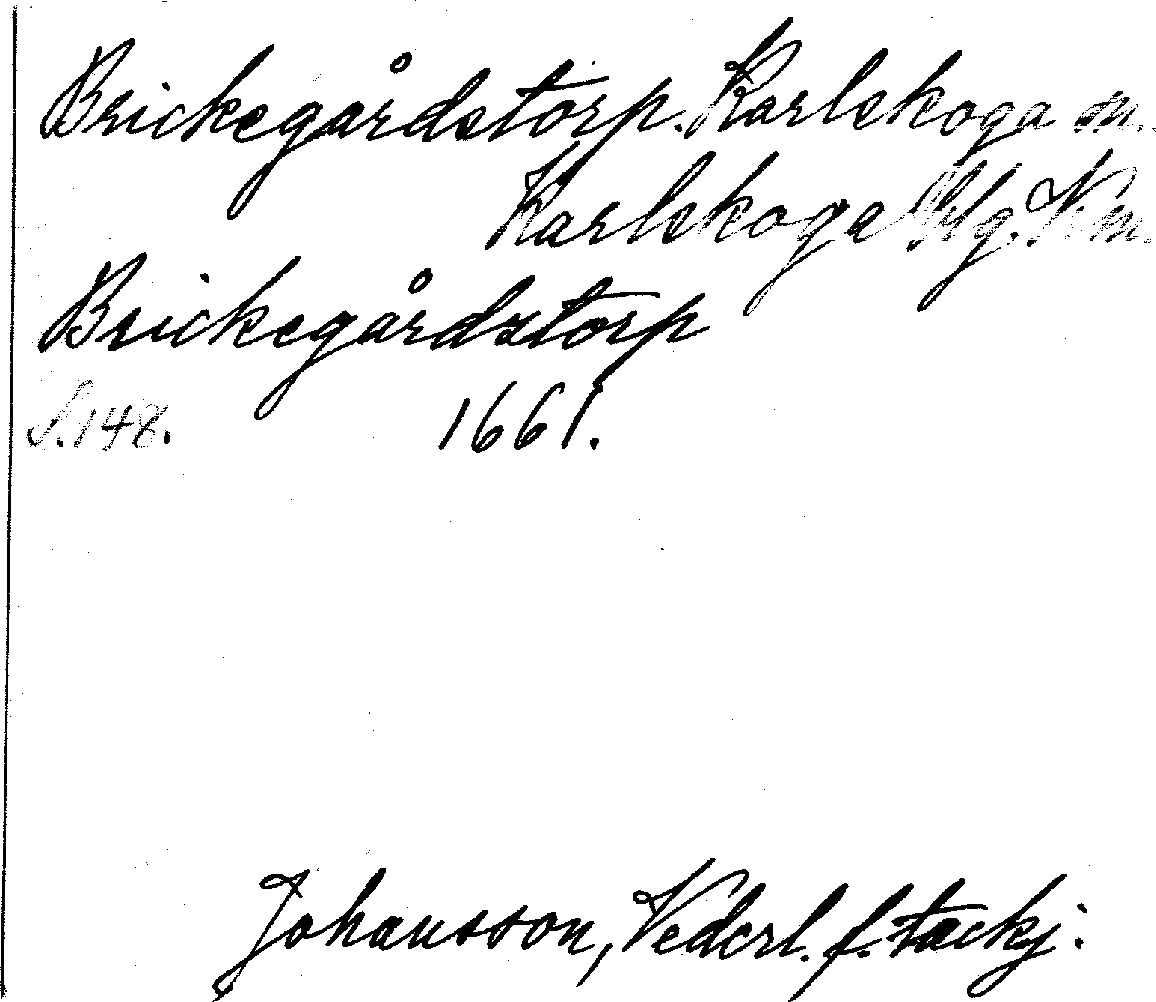 Brickegårdstorp. Karlskoga m.
Karlskoga Hg. Vm.
Brickegårdstorp
S.148. 1661.
Johansson, Vederl. f. tackj.